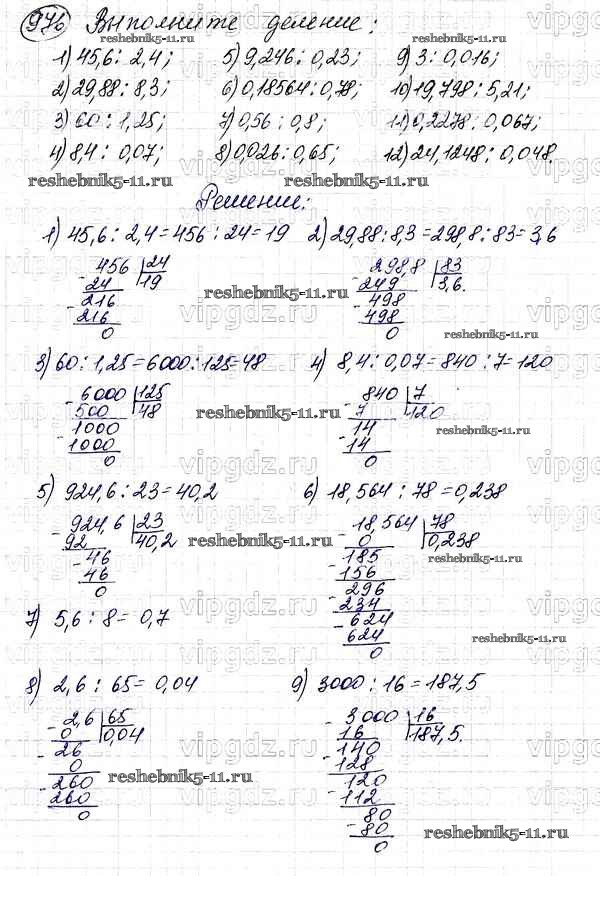 976 Выполните деление:
1) 45,6 : 2,4; 5) 9,246 : 0,23; 9) 3 : 0,016;
2) 29,88 : 8,3; 6) 0,18564 : 0,78; 10) 19,798 : 5,21;
3) 60 : 1,25; 7) 0,56 : 0,8; 11) 0,2278 : 0,067;
4) 8,4 : 0,07; 8) 0,026 : 0,65; 12) 24,1248 : 0,048.
Решение:
1) 45,6 : 2,4 = 456 : 24 = 19 2) 29,88 : 8,3 = 298,8 : 83 = 3,6
456 24 298,8 83
24 19 249 3,6.
216 498
216 498
0 0
3) 60 : 1,25 = 6000 : 125 = 48 4) 8,4 : 0,07 = 840 : 7 = 120
6000 125 840 7
500 48 7 120
1000 14
1000 14
0 0
5) 924,6 : 23 = 40,2 6) 18,564 : 78 = 0,238
924,6 23 18,564 78
92 40,2 0 0,238
46 185
46 156
0 296
234
624
624
0
7) 5,6 : 8 = 0,7
8) 2,6 : 65 = 0,04 9) 3000 : 16 = 187,5
2,6 65 3000 16
0 0,04 16 187,5.
26 140
0 128
260 120
260 112
0 80
80
0
reshebnik5-11.ru
vipgdz.ru